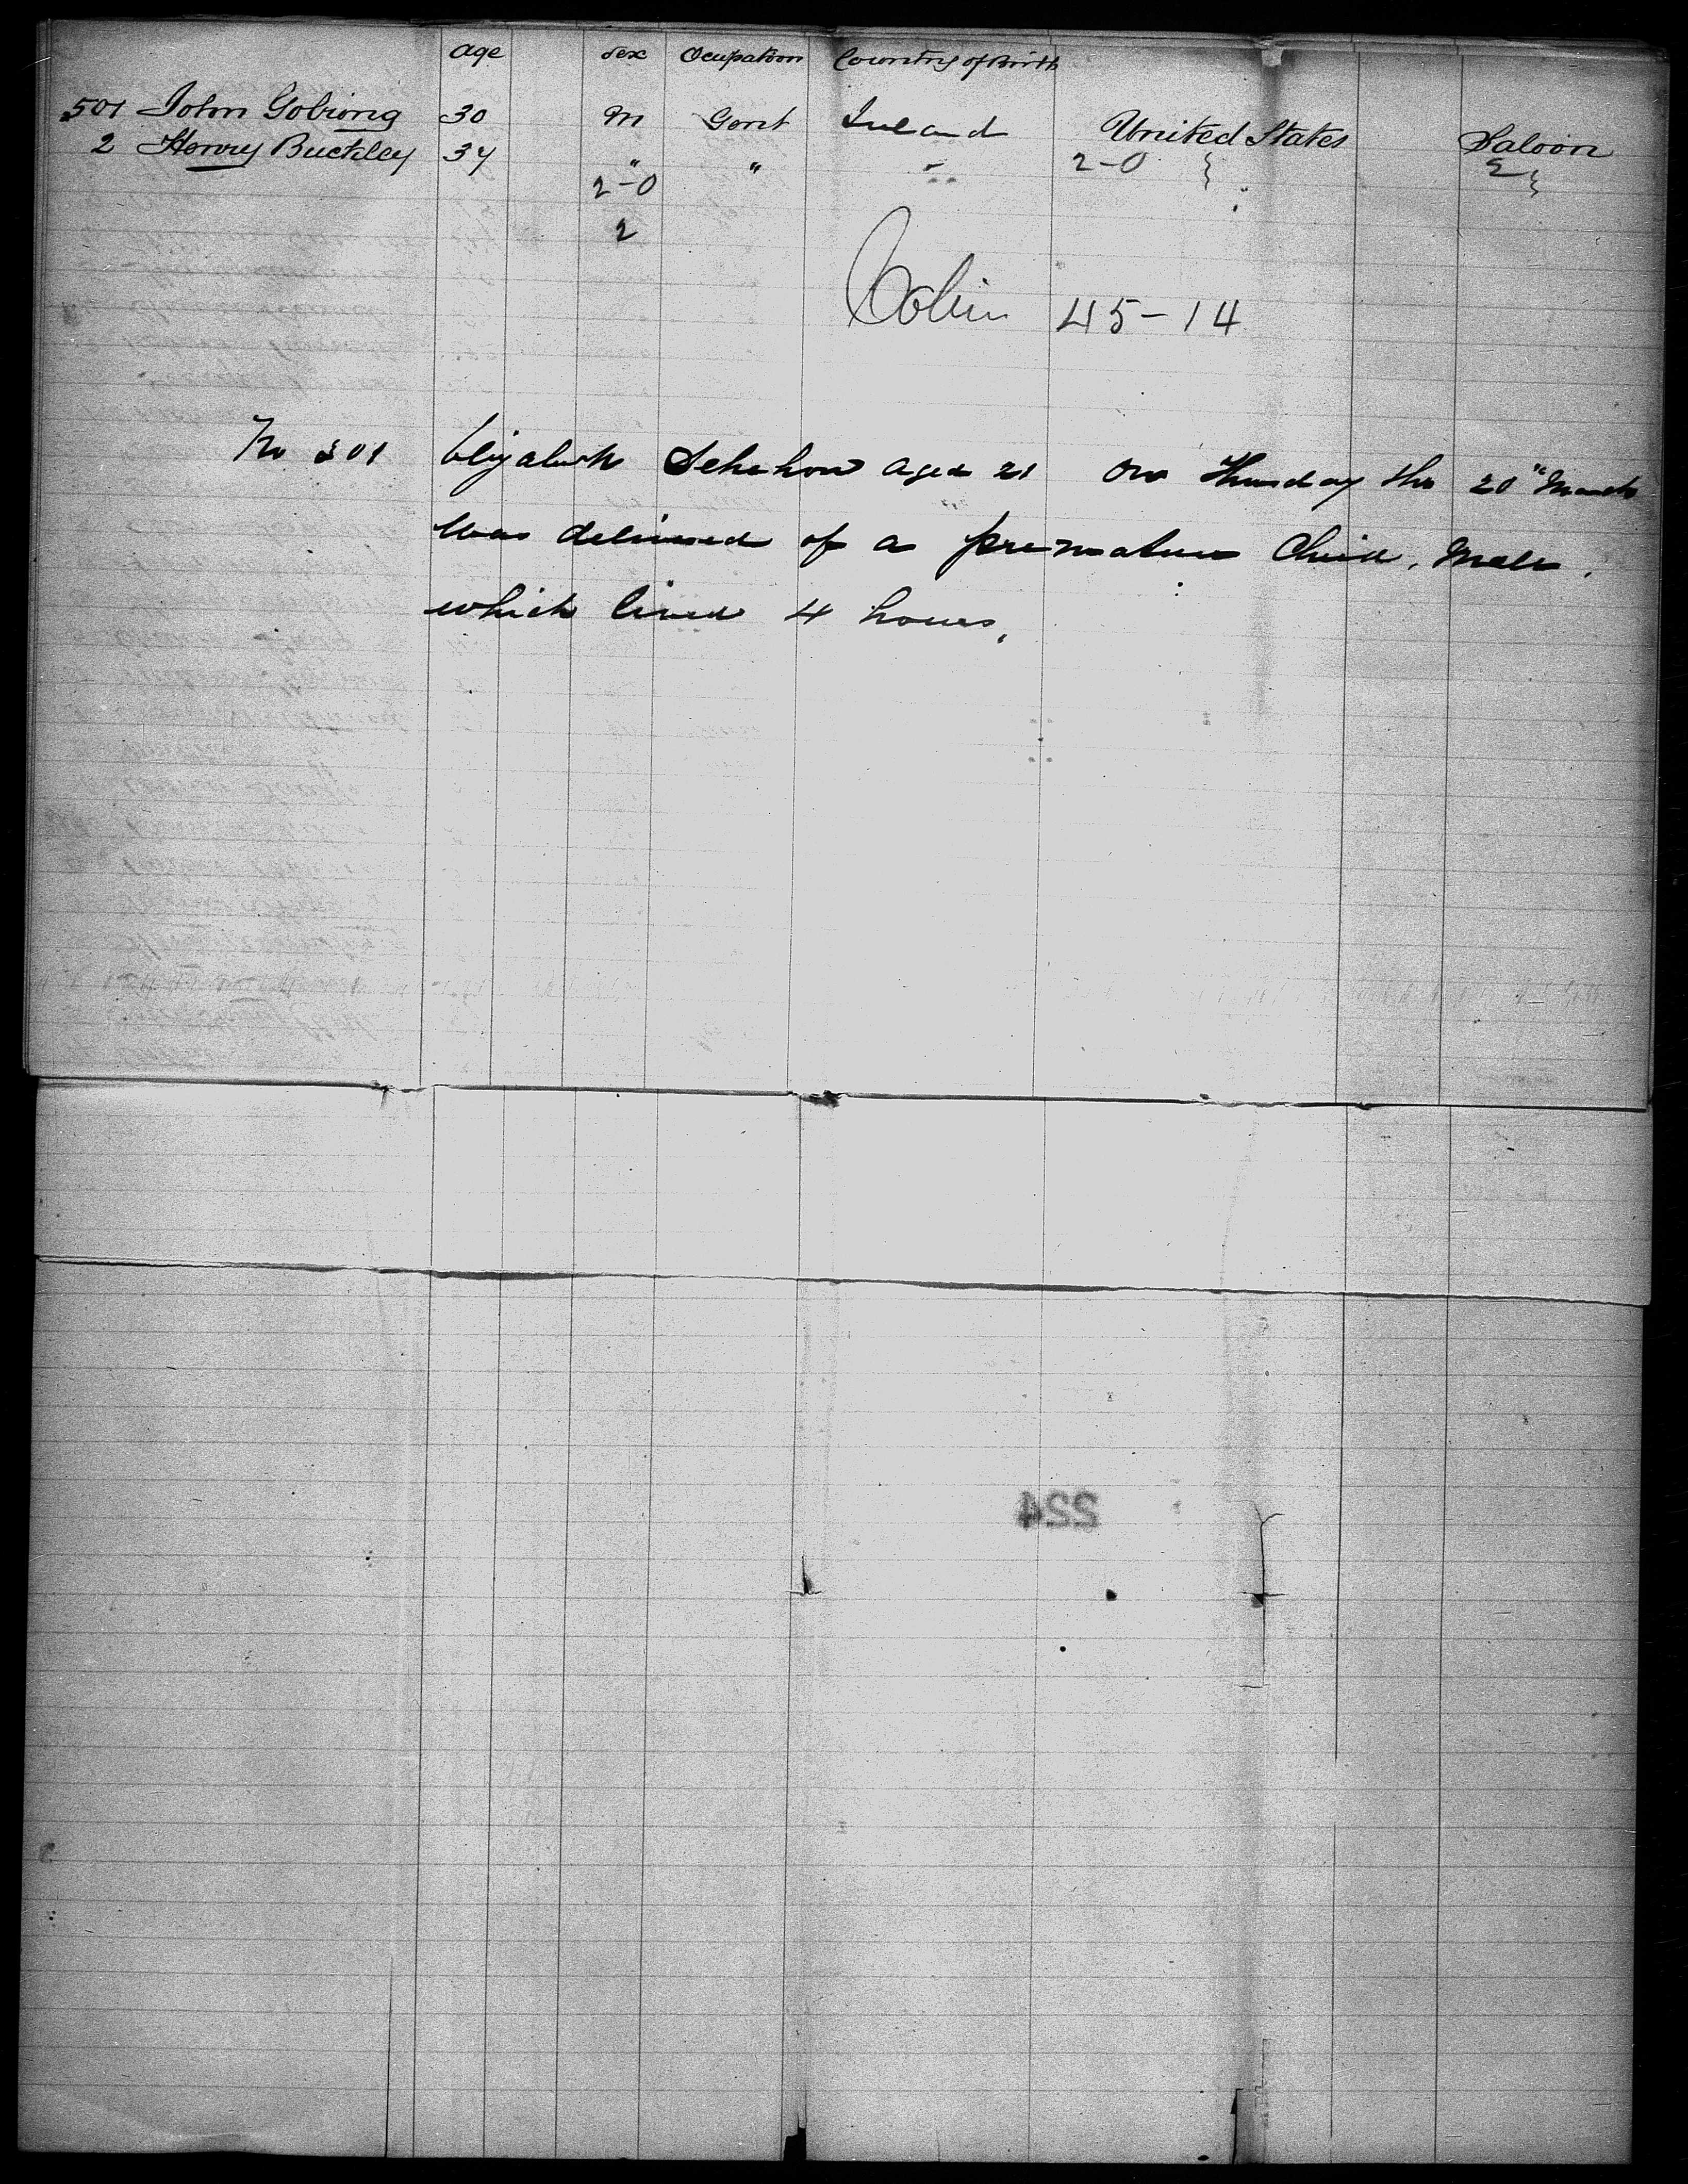 age sex Ocupation Country of Birth
501 John Gobiong 30 M Gent Ireland United States Saloon
2 Henry Buckley 34 " " " 2-0 2
2-0
2
Cabin 45-14
No 301 Elizabeth aged 21 on Thursday the 20th March
was delivered of a premature Child, Male,
which lived 4 hours.
224